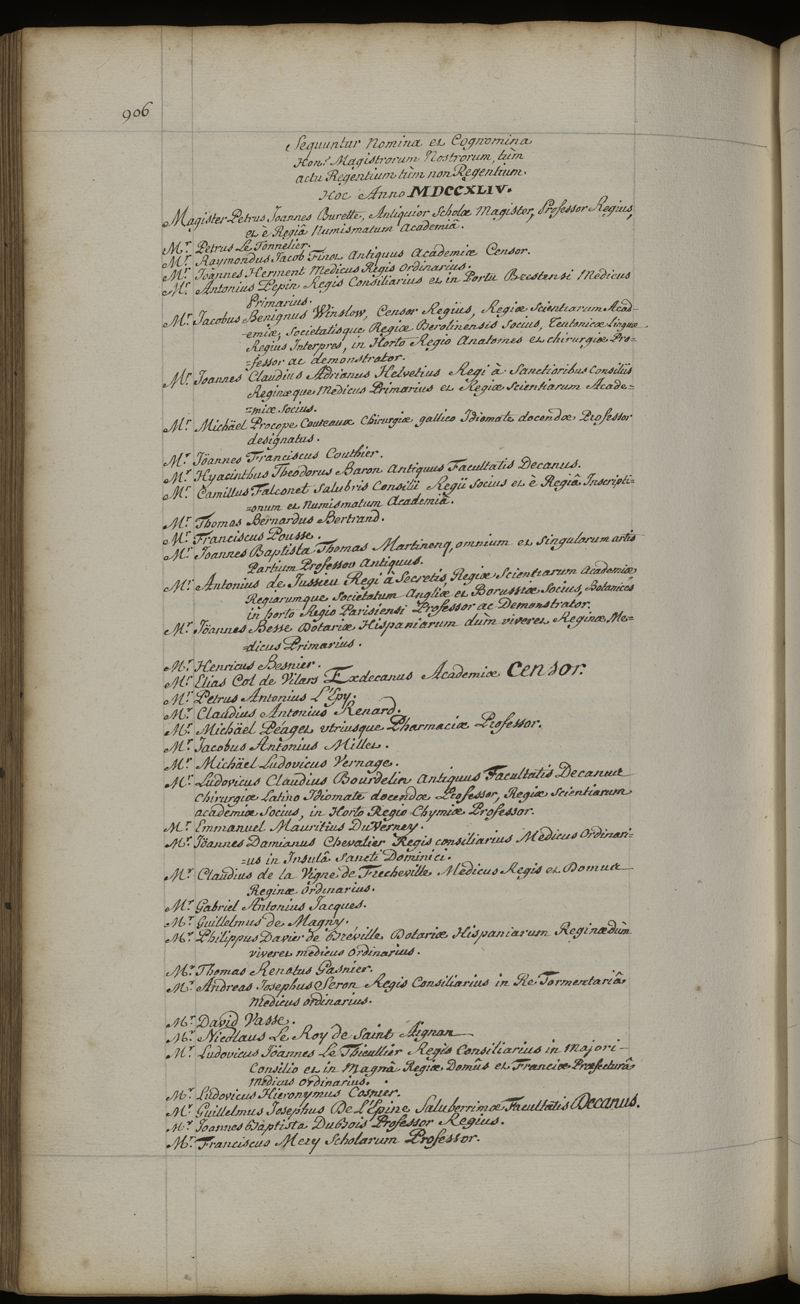 906
Sequuntur Nomina et Cognomina
Hon.r Magistrorum Nostrorum, tùm
actu Regentium tùm non Regentium.
Hoc Anno MDCCXLIV.
Magister Petrus Joannes Burette, Antiquior Scholæ Magister, Professor Regius,
et è Regiâ Numismatum Academiâ.
Mr. Petrus Le Tonnelier.
Mr. Raymondus Jacob Finot Antiquus Academiæ Censor.
Mr. Joannes Herment Medicus Regis Ordinarius.
Mr. Antonius Pepin Regis Consiliarius et in Portu Brestensi Medicus
Primarius.
Mr. Jacobus Benignus Winslow, Censor Regius, Regiæ Scientiarum Acad-
-emiæ, Societatisque Regiæ Berolinensis Socius, Teutonicæ Linguæ
Regius Interpres, in Horto Regio Anatomes et chirurgiæ Pro=
=fessor ac demonstrator.
Mr. Joannes Claudius Adrianus Helvetius Regi à Sanctioribus Consiliis
Reginæque Medicus Primarius et Regiæ Scientiarum Acade=
=miæ Socius.
Mr. Michäel Procope Couteaux Chirurgiæ gallico Idiomate docendæ Professor
designatus.
Mr. Jöannes Franciscus Couthier.
Mr. Hyacinthus Theodorus Baron Antiquus Facultatis Decanus.
Mr. Camillus Falconet Salubris Consilii Regii Socius et è Regiâ Inscripti=
=onum et Numismatum Academiâ.
Mr. Thomas Bernardus Bertrand.
Mr. Franciscus Pousse.
Mr. Joannes Baptista Thomas Martinenq, omnium et Singularum artis
Partium Professor Antiquus.
Mr. Antonius de Jussieu Regi à Secretis, Regiæ Scientiarum Academiæ,
Regiarumque Societatum Angliæ et Borussiæ Socius, Botanices
in horto Regio Parisiensi Professor ac Demonstrator.
Mr. Jöannes Besse Dotariæ Hispaniarum dum viveret Reginæ Me=
=dicus Primarius.
Mr. Henricus Besnier.
Mr. Elias Col de Vilars Exdecanus Academiæ Censor.
Mr. Petrus Antonius L'Epy.
Mr. Claudius Antonius Renard.
Mr. Michäel Peaget utriusque Pharmaciæ Professor.
Mr. Jacobus Antonius Millet.
Mr. Michäel Ludovicus Vernage.
Mr. Ludovicus Claudius Bourdelin Antiquus Facultatis Decanus
Chirurgiæ Latino Idiomate docendæ Professor, Regiæ Scientiarum
academiæ Socius, in Horto Regio Chymiæ Professor.
Mr. Emmanuel Mauritius DuVerney.
Mr. Jöannes Damianus Chevalier Regis consiliarius Medicus Ordinari=
=us in Insulâ Sancti Dominici.
Mr. Claudius de la Vigne de Frecheville Medicus Regis et Domus
Reginæ Ordinarius.
Mr. Gabriel Antonius Jacques.
Mr. Guillelmus de Magny.
Mr. Philippus Davier de Breville Dotariæ Hispaniarum Reginæ dùm
viveret medicus Ordinarius.
Mr. Thomas Renatus Gasnier.
Mr. Andreas Josephus Seron Regis Consiliarius in Re Tormentariâ
Medicus ordinarius.
Mr. David Vasse.
Mr. Nicolaus Le Roy de Saint Aignan
Mr. Ludovicus Jöannes Le Thieullier Regis Consiliarius in Majori
Consilio et in Magnâ Regiæ Domûs et Franciæ Præfecturâ
Medicus ordinarius.
Mr. Ludovicus Hieronymus Cosnier.
Mr. Guillelmus Josephus De L'Epine Saluberrimæ Facultatis Decanus.
Mr. Joannes Baptista DuBois Professor Regius.
Mr. Franciscus Mery Scholarum Professor.